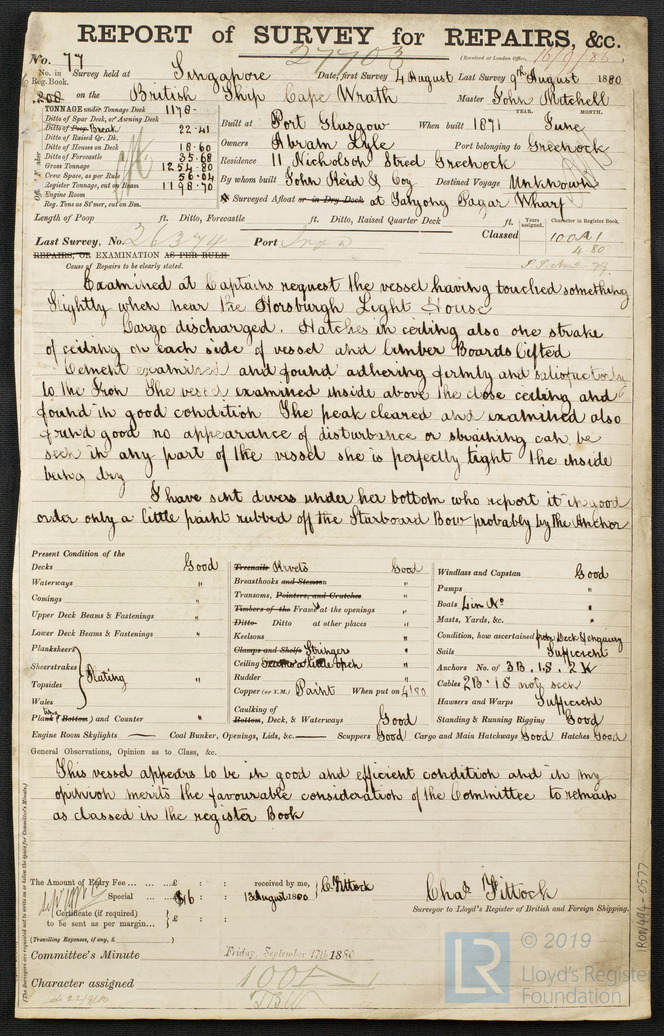 REPORT OF SURVEY for REPAIRS, &c.
No. 77 27703 (Received at London Office, 16/9/80)
No. in Reg. Book. Survey held at Singapore Date, first Survey 4 August Last Survey 9th August 1880
208 on the British Ship Cape Wrath Master John Mitchell
TONNAGE under Tonnage Deck 1178-
Ditto of Spar Deck, or Awning Deck
Ditto of Poop Break 22.41
Ditto of Raised Qr. Dk.
Ditto of Houses on Deck 18.60
Ditto of Forecastle 35.68
Gross Tonnage 1254.80
Crew Space, as per Rule 56.04
Register Tonnage, cut on Beam 1198.70
Engine Room
Reg. Tons as St'mer, cut on Bm.
Built at Port Glasgow When built 1871 YEAR. June MONTH.
Owners Abram Lyle Port belonging to Greenock
Residence 11 Nicholson Street Greenock
By whom built John Reid & Coy Destined Voyage Unknown
Surveyed Afloat or in Dry Dock at Tanyong Pagar Wharf
Length of Poop ft. Ditto, Forecastle ft. Ditto, Raised Quarter Deck ft.
Years assigned. Character in Register Book.
Last Survey, No. 26374 Port Classed 100A1
4.80
REPAIRS, OR EXAMINATION AS PER RULE
Cause of Repairs to be clearly stated.
Examined at Captains request the vessel having touched something
slightly when near the Horsburgh Light House
Cargo discharged. Hatches in ceiling also one strake
of ceiling on each side of vessel and limber Boards lifted
Cement examined and found adhering firmly and satisfactorily
to the Iron The vessel examined inside above the close ceiling and
found in good condition The peak cleared and examined also
found good no appearance of disturbance or straining can be
seen in any part of the vessel she is perfectly tight the inside
being dry
I have sent divers under her bottom who report it in good
order only a little paint rubbed off the Starboard Bow probably by the Anchor
Present Condition of the
Decks Good
Waterways "
Comings "
Upper Deck Beams & Fastenings "
Lower Deck Beams & Fastenings "
Planksheers
Sheerstrakes
Topsides
Wales
Plating "
Plank ting (Bottom) and Counter "
Treenails Rivets Good
Breasthooks and Stemson "
Transoms, Pointers, and Crutches "
Timbers of the Frame at the openings "
Ditto Ditto at other places "
Keelsons "
Clamps and Shelfs Stringers "
Ceiling Seams a little open
Rudder "
Copper (or Y.M.) Paint When put on 4/80
Caulking of Bottom, Deck, & Waterways Good
Windlass and Capstan Good
Pumps "
Boats 4 in No "
Masts, Yards, &c. "
Condition, how ascertained from Deck & enquiry
Sails Sufficient
Anchors No. of 3B. 1S. 2K
Cables 2B. 1S not seen
Hawsers and Warps Sufficient
Standing & Running Rigging Good
Engine Room Skylights — Coal Bunker, Openings, Lids, &c. — Scuppers Good Cargo and Main Hatchways Good Hatches Good
General Observations, Opinion as to Class, &c.
This vessel appears to be in good and efficient condition and in my
opinion merits the favourable consideration of the Committee to remain
as classed in the register Book
The Amount of Entry Fee ... £ : : received by me, C. Fittock
Special ... $16 : : 13 August 1880
Certificate (if required) to be sent as per margin... £ : :
Chas Fittock
Surveyor to Lloyd's Register of British and Foreign Shipping.
(Travelling Expenses, if any, £ )
Committee's Minute Friday, September 17th 1880
Character assigned 100A
(The Surveyors are requested not to write on or below the space for Committee's Minute.)
IRON494-0577
© 2019
LR
Lloyd's Register
Foundation